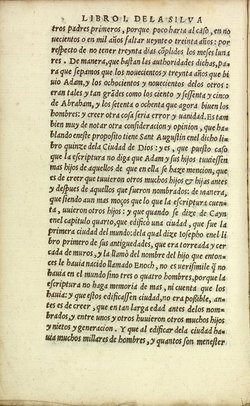 LIBRO I. DE LA SILVA
tres padres primeros, porque poco haria al caso, en no
uecientos o en mil años faltar ueynte o treinta años: por
respeto de no tener treynta dias cũplidos los meses luna
res. De manera, que bastan las authoridades dichas, pa
ra que sepamos que los nouecientos y treynta años que bi
uio Adam, y los ochocientos y nouenta delos otros:
eran tales y tan grãdes como los ciento y sessenta y cinco
de Abraham, y los setenta o ochenta que agora biuen los
hombres: y creer otra cosa seria error y uanidad. Es tam
bien muy de notar otra consideracion y opinion, que ha
blando eneste proposito tiene Sant Augustin enel dicho li
bro quinze dela Ciudad de Dios: y es, que puesto caso
que la escriptura no diga que Adam y sus hijos tuuiessen
mas hijos de aquellos de que en ella se haze mencion, que
es de creer que tuuieron otros muchos hijos & hijas antes
y despues de aquellos que fueron nombrados: de manera,
que siendo aun mas moços que lo que la escriptura cuen
ta, uuieron otros hijos: y que quando se dize de Cayn
enel capitulo quarto, que edificò una ciudad, que fue la
primera ciudad del mundo: dela qual dize Iosepho enel li
bro primero de sus antiguedades, que era torreada y cer
cada de muros, y la llamò del nombre del hijo que enton
ces le hauia nacido llamado Enoch, no es uerisimile q̃ no
huuiesse en el mundo sino tres o quatro hombres, porque la
escriptura no haga memoria de mas, ni cuenta que los
hauia: y que estos edificassen ciudad, no era possible, an
tes es de creer, que en tan larga edad antes delos nom-
brados, y entre unos y otros huuieron otros muchos hijos
y nietos y generacion. Y que al edificar dela ciudad ha
uia muchos millares de hombres, y quantos son menester